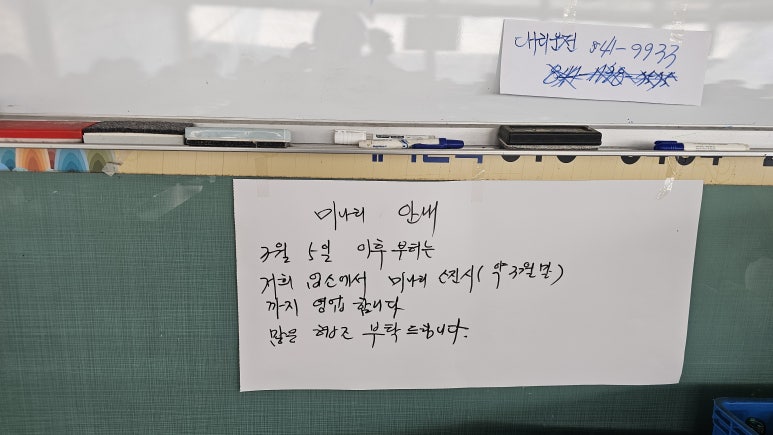 대리운전 841-9933
미나리 안내
3월 5일 이후부터는
저희 업소에서 미나리 소진시(약 3월말)
까지 영업 합니다
많은 협조 부탁드립니다.